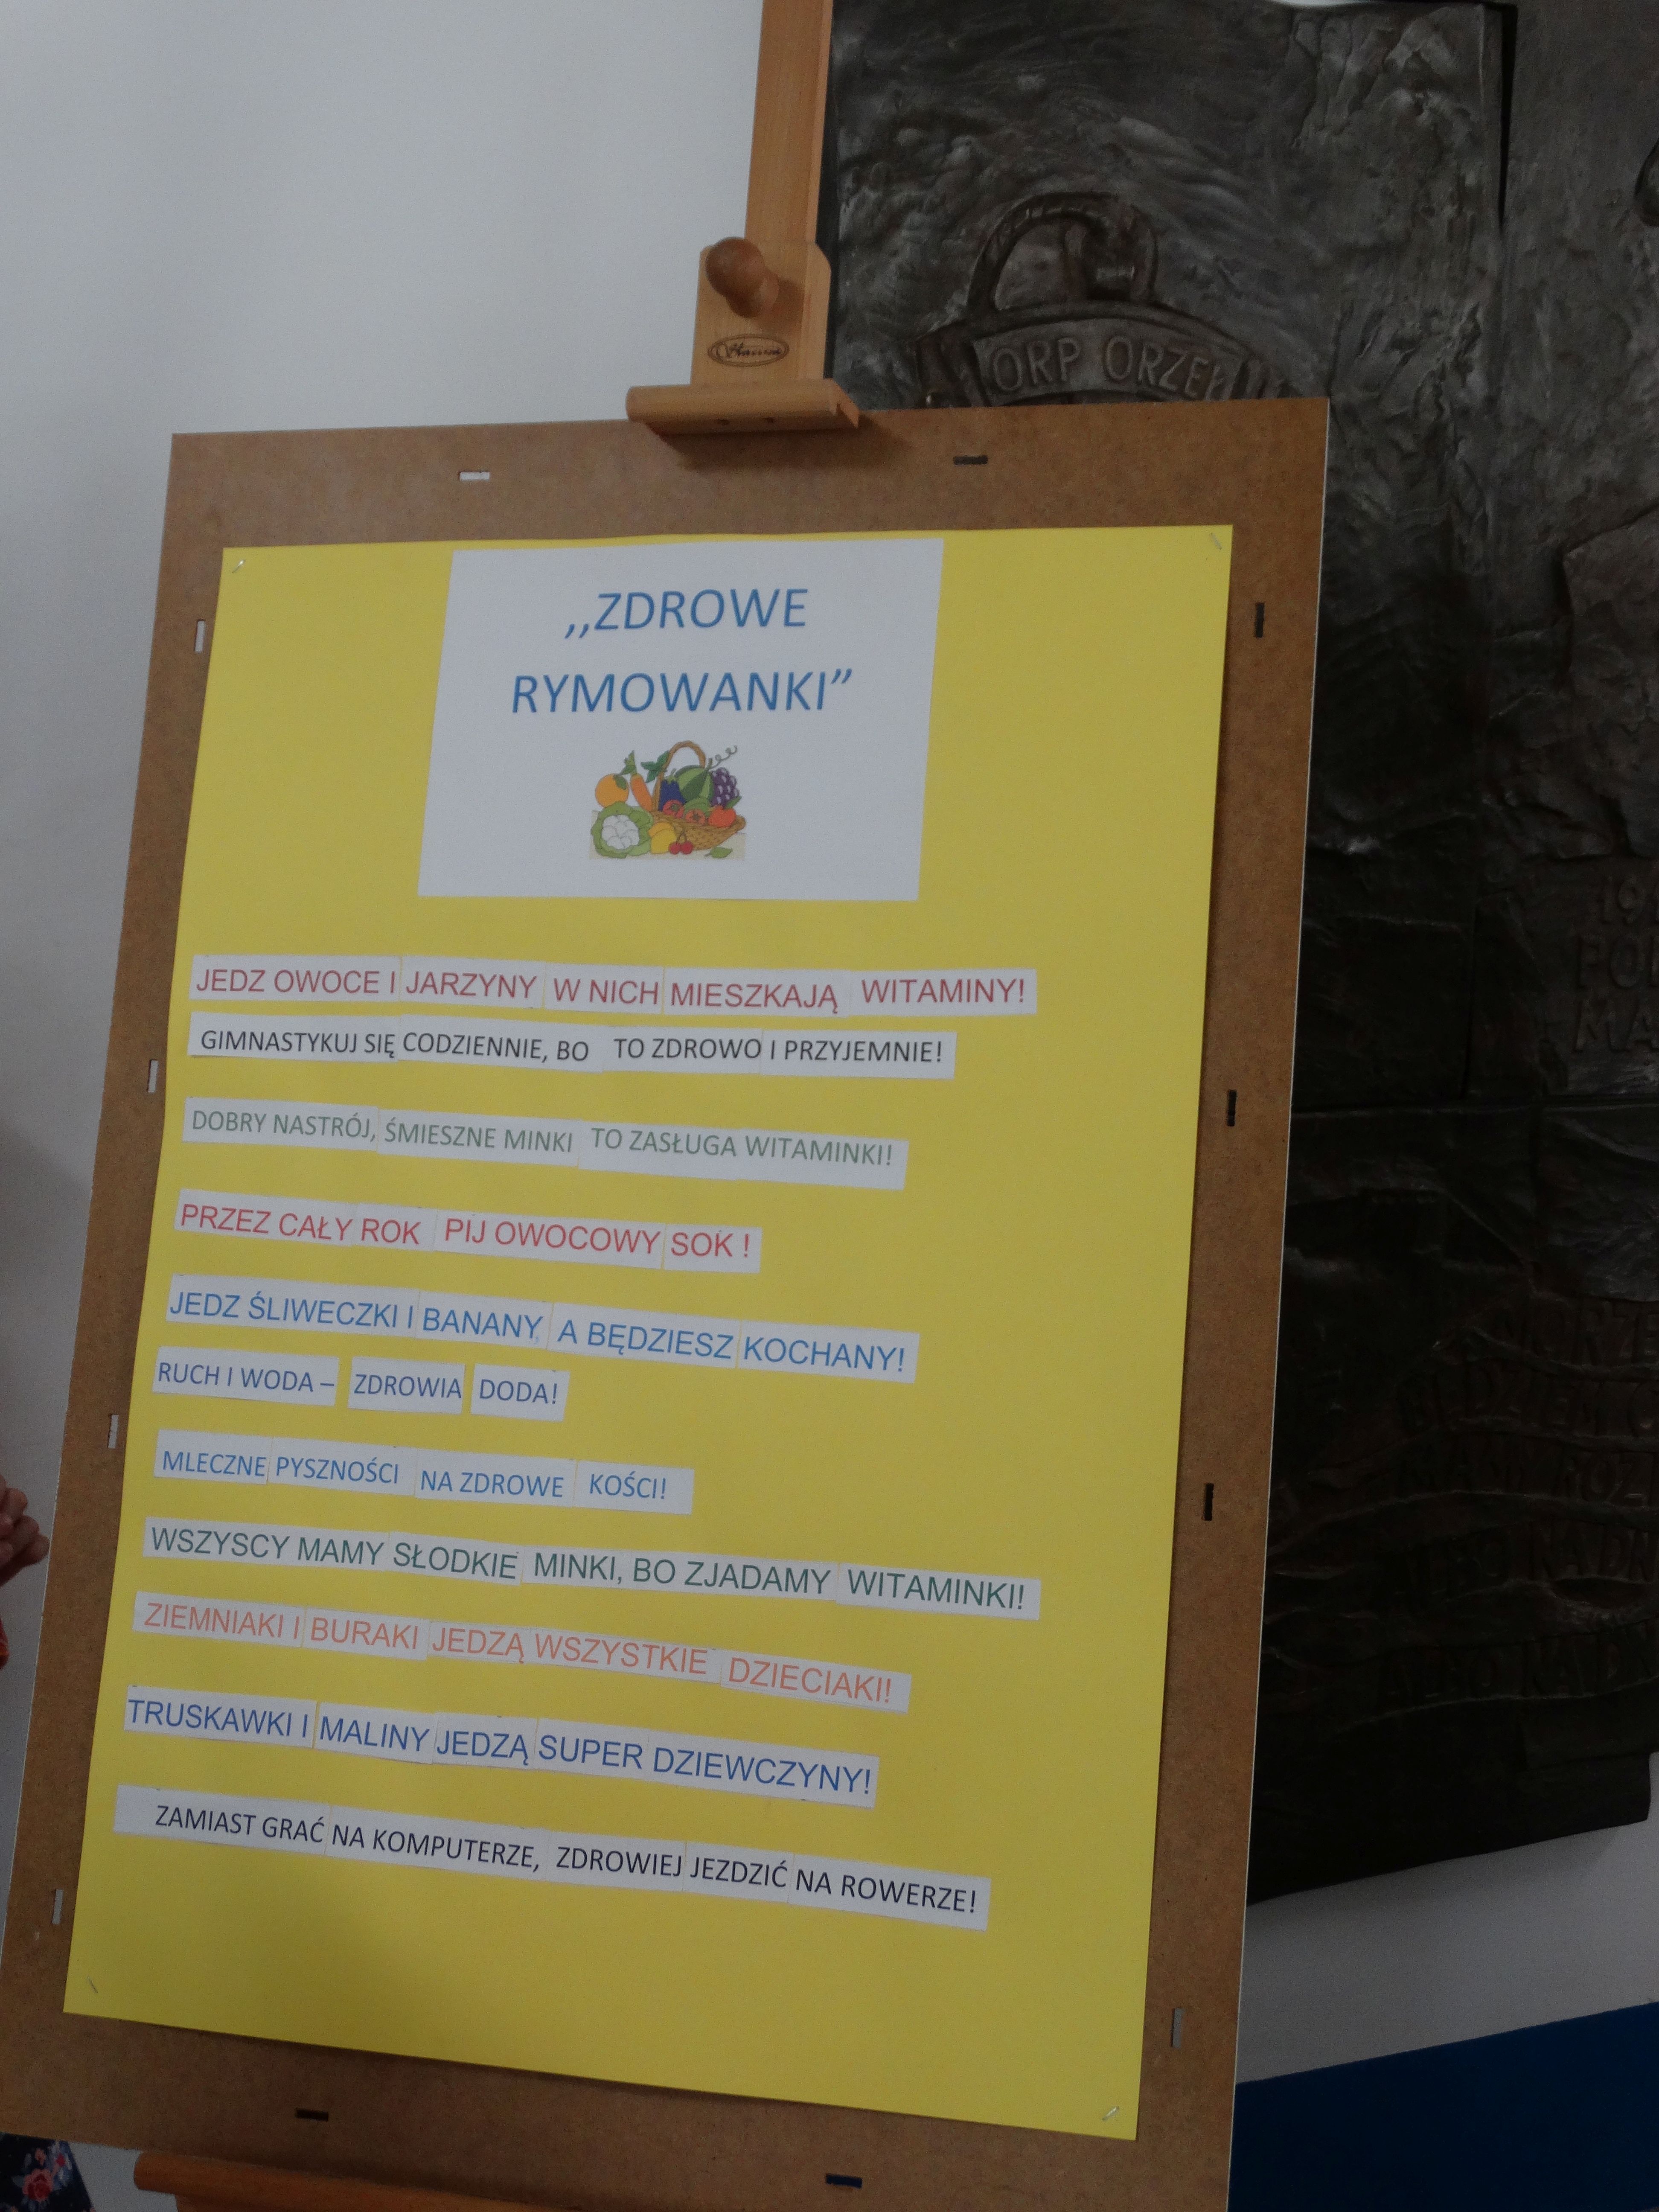 ORP ORZEŁ
,,ZDROWE
RYMOWANKI”
JEDZ OWOCE I JARZYNY W NICH MIESZKAJĄ WITAMINY!
GIMNASTYKUJ SIĘ CODZIENNIE, BO TO ZDROWO I PRZYJEMNIE!
DOBRY NASTRÓJ, ŚMIESZNE MINKI TO ZASŁUGA WITAMINKI!
PRZEZ CAŁY ROK PIJ OWOCOWY SOK !
JEDZ ŚLIWECZKI I BANANY A BĘDZIESZ KOCHANY!
RUCH I WODA – ZDROWIA DODA!
MLECZNE PYSZNOŚCI NA ZDROWE KOŚCI!
WSZYSCY MAMY SŁODKIE MINKI, BO ZJADAMY WITAMINKI!
ZIEMNIAKI I BURAKI JEDZĄ WSZYSTKIE DZIECIAKI!
TRUSKAWKI I MALINY JEDZĄ SUPER DZIEWCZYNY!
ZAMIAST GRAĆ NA KOMPUTERZE, ZDROWIEJ JEZDZIĆ NA ROWERZE!